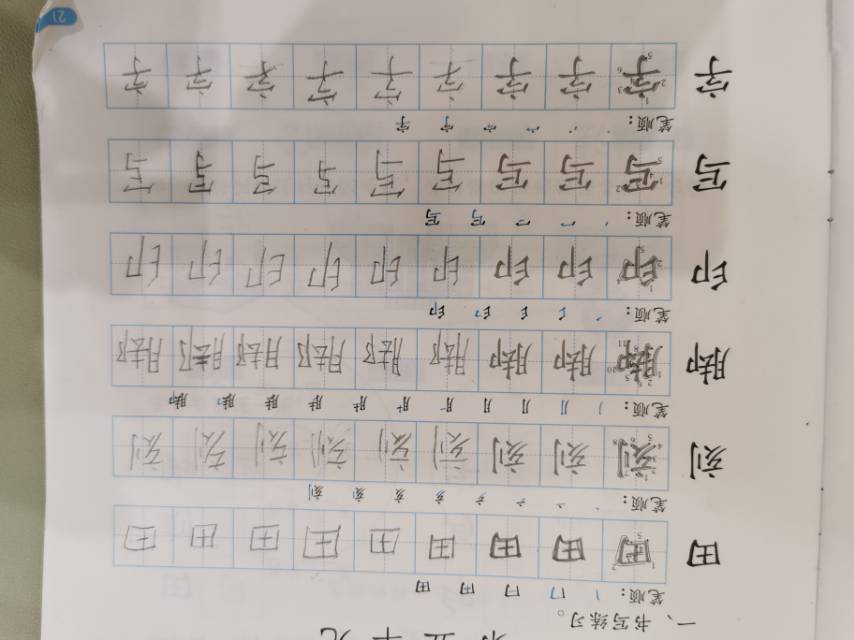 一、书写练习。
笔顺：丨 冂 冂 田 田
田 田 田 田 田 田 田 田 田 田
笔顺：亥 刻
刻 刻 刻 刻 刻 刻 刻 刻 刻 刻
笔顺：丿 刀 月 月 脚
脚 脚 脚 脚 脚 脚 脚 脚 脚 脚
笔顺：印
印 印 印 印 印 印 印 印 印 印
笔顺：丶 冖 写 写
写 写 写 写 写 写 写 写 写 写
笔顺：字
字 字 字 字 字 字 字 字 字 字
21